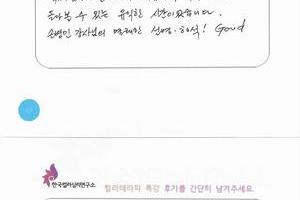 돌아볼 수 있는 유익한 시간이었습니다.
강사님의 명쾌한 설명·해석! Good
한국컬러심리연구소
컬러테라피 특강 후기를 간단히 남겨주세요.